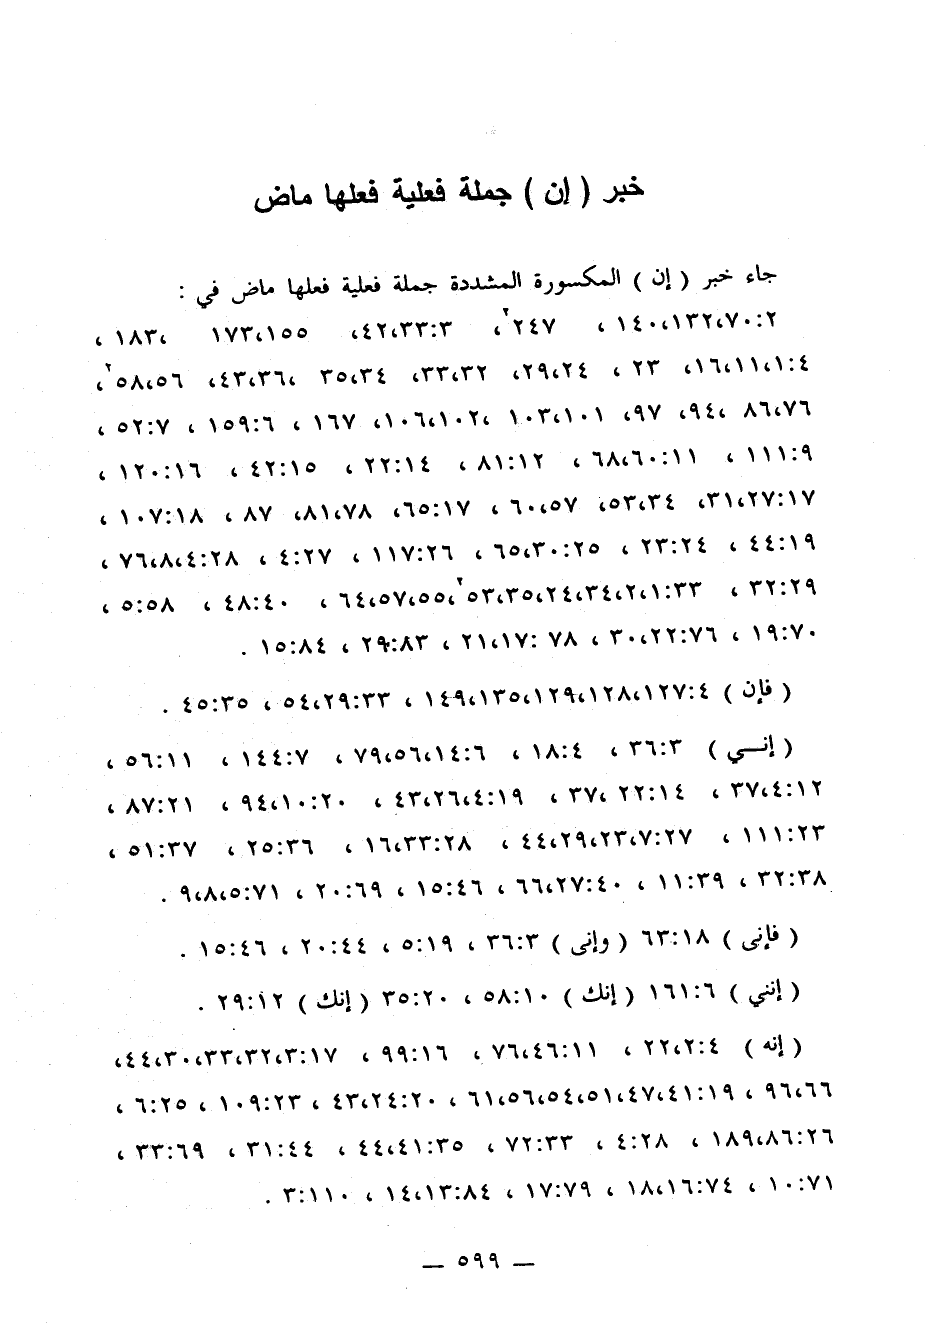 خبر ( إن ) جملة فعلية فعلها ماض
جاء خبر ( إن ) المكسورة المشددة جملة فعلية فعلها ماض في :
٢:٧٠،١٣٢،١٤٠ ، ٢٤٧٢، ٣:٣٣،٤٢، ١٥٥،١٧٣ ،١٨٣ ،
٤:١،١١،١٦، ٢٣ ، ٢٤،٢٩، ٣٢،٣٣، ٣٤،٣٥ ،٣٦،٤٣، ٥٦،٥٨٢،
٧٦،٨٦ ،٩٤، ٩٧، ١٠١،١٠٣ ،١٠٢،١٠٦، ١٦٧ ، ٦:١٥٩ ، ٧:٥٢ ،
٩:١١١ ، ١١:٦٠،٦٨ ، ١٢:٨١ ، ١٤:٢٢ ، ١٥:٤٢ ، ١٦:١٢٠ ،
١٧:٢٧،٣١، ٣٤،٥٣، ٥٧،٦٠ ، ١٧:٦٥، ٧٨،٨١، ٨٧ ، ١٨:١٠٧ ،
١٩:٤٤ ، ٢٤:٢٣ ، ٢٥:٣٠،٦٥ ، ٢٦:١١٧ ، ٢٧:٤ ، ٢٨:٤،٨،٧٦ ،
٢٩:٣٢ ، ٣٣:١،٢،٣٤،٢٤،٣٥،٥٣٢،٥٥،٥٧،٦٤ ، ٤٠:٤٨ ، ٥٨:٥ ،
٧٠:١٩ ، ٧٦:٢٢،٣٠ ، ٧٨ :١٧،٢١ ، ٨٣:٢٩ ، ٨٤:١٥ .
( فإن ) ٤:١٢٧،١٢٨،١٢٩،١٣٥،١٤٩ ، ٣٣:٢٩،٥٤ ، ٣٥:٤٥ .
( إنــي ) ٣:٣٦ ، ٤:١٨ ، ٦:١٤،٥٦،٧٩ ، ٧:١٤٤ ، ١١:٥٦ ،
١٢:٤،٣٧ ، ١٤:٢٢ ،٣٧ ، ١٩:٤،٢٦،٤٣ ، ٢٠:١٠،٩٤ ، ٢١:٨٧ ،
٢٣:١١١ ، ٢٧:٧،٢٣،٢٩،٤٤ ، ٢٨:٣٣،١٦ ، ٣٦:٢٥ ، ٣٧:٥١ ،
٣٨:٣٢ ، ٣٩:١١ ، ٤٠:٢٧،٦٦ ، ٤٦:١٥ ، ٦٩:٢٠ ، ٧١:٥،٨،٩ .
( فإنى ) ١٨:٦٣ (وإنى ) ٣:٣٦ ، ١٩:٥ ، ٤٤:٢٠ ، ٤٦:١٥ .
( إنني ) ٦:١٦١ (إنك ) ١٠:٥٨ ، ٢٠:٣٥ (إنك ) ١٢:٢٩ .
( إنه ) ٤:٢،٢٢ ، ١١:٤٦،٧٦ ، ١٦:٩٩ ، ١٧:٣،٣٢،٣٣،٣٠،٤٤،
٦٦،٩٦ ، ١٩:٤١،٤٧،٥١،٥٤،٥٦،٦١ ، ٢٠:٢٤،٤٣ ، ٢٣:١٠٩ ، ٢٥:٦ ،
٢٦:٨٦،١٨٩ ، ٢٨:٤ ، ٣٣:٧٢ ، ٣٥:٤١،٤٤ ، ٤٤:٣١ ، ٦٩:٣٣ ،
٧١:١٠ ، ٧٤:١٦،١٨ ، ٧٩:١٧ ، ٨٤:١٣،١٤ ، ١١٠:٣ .
— ٥٩٩ —